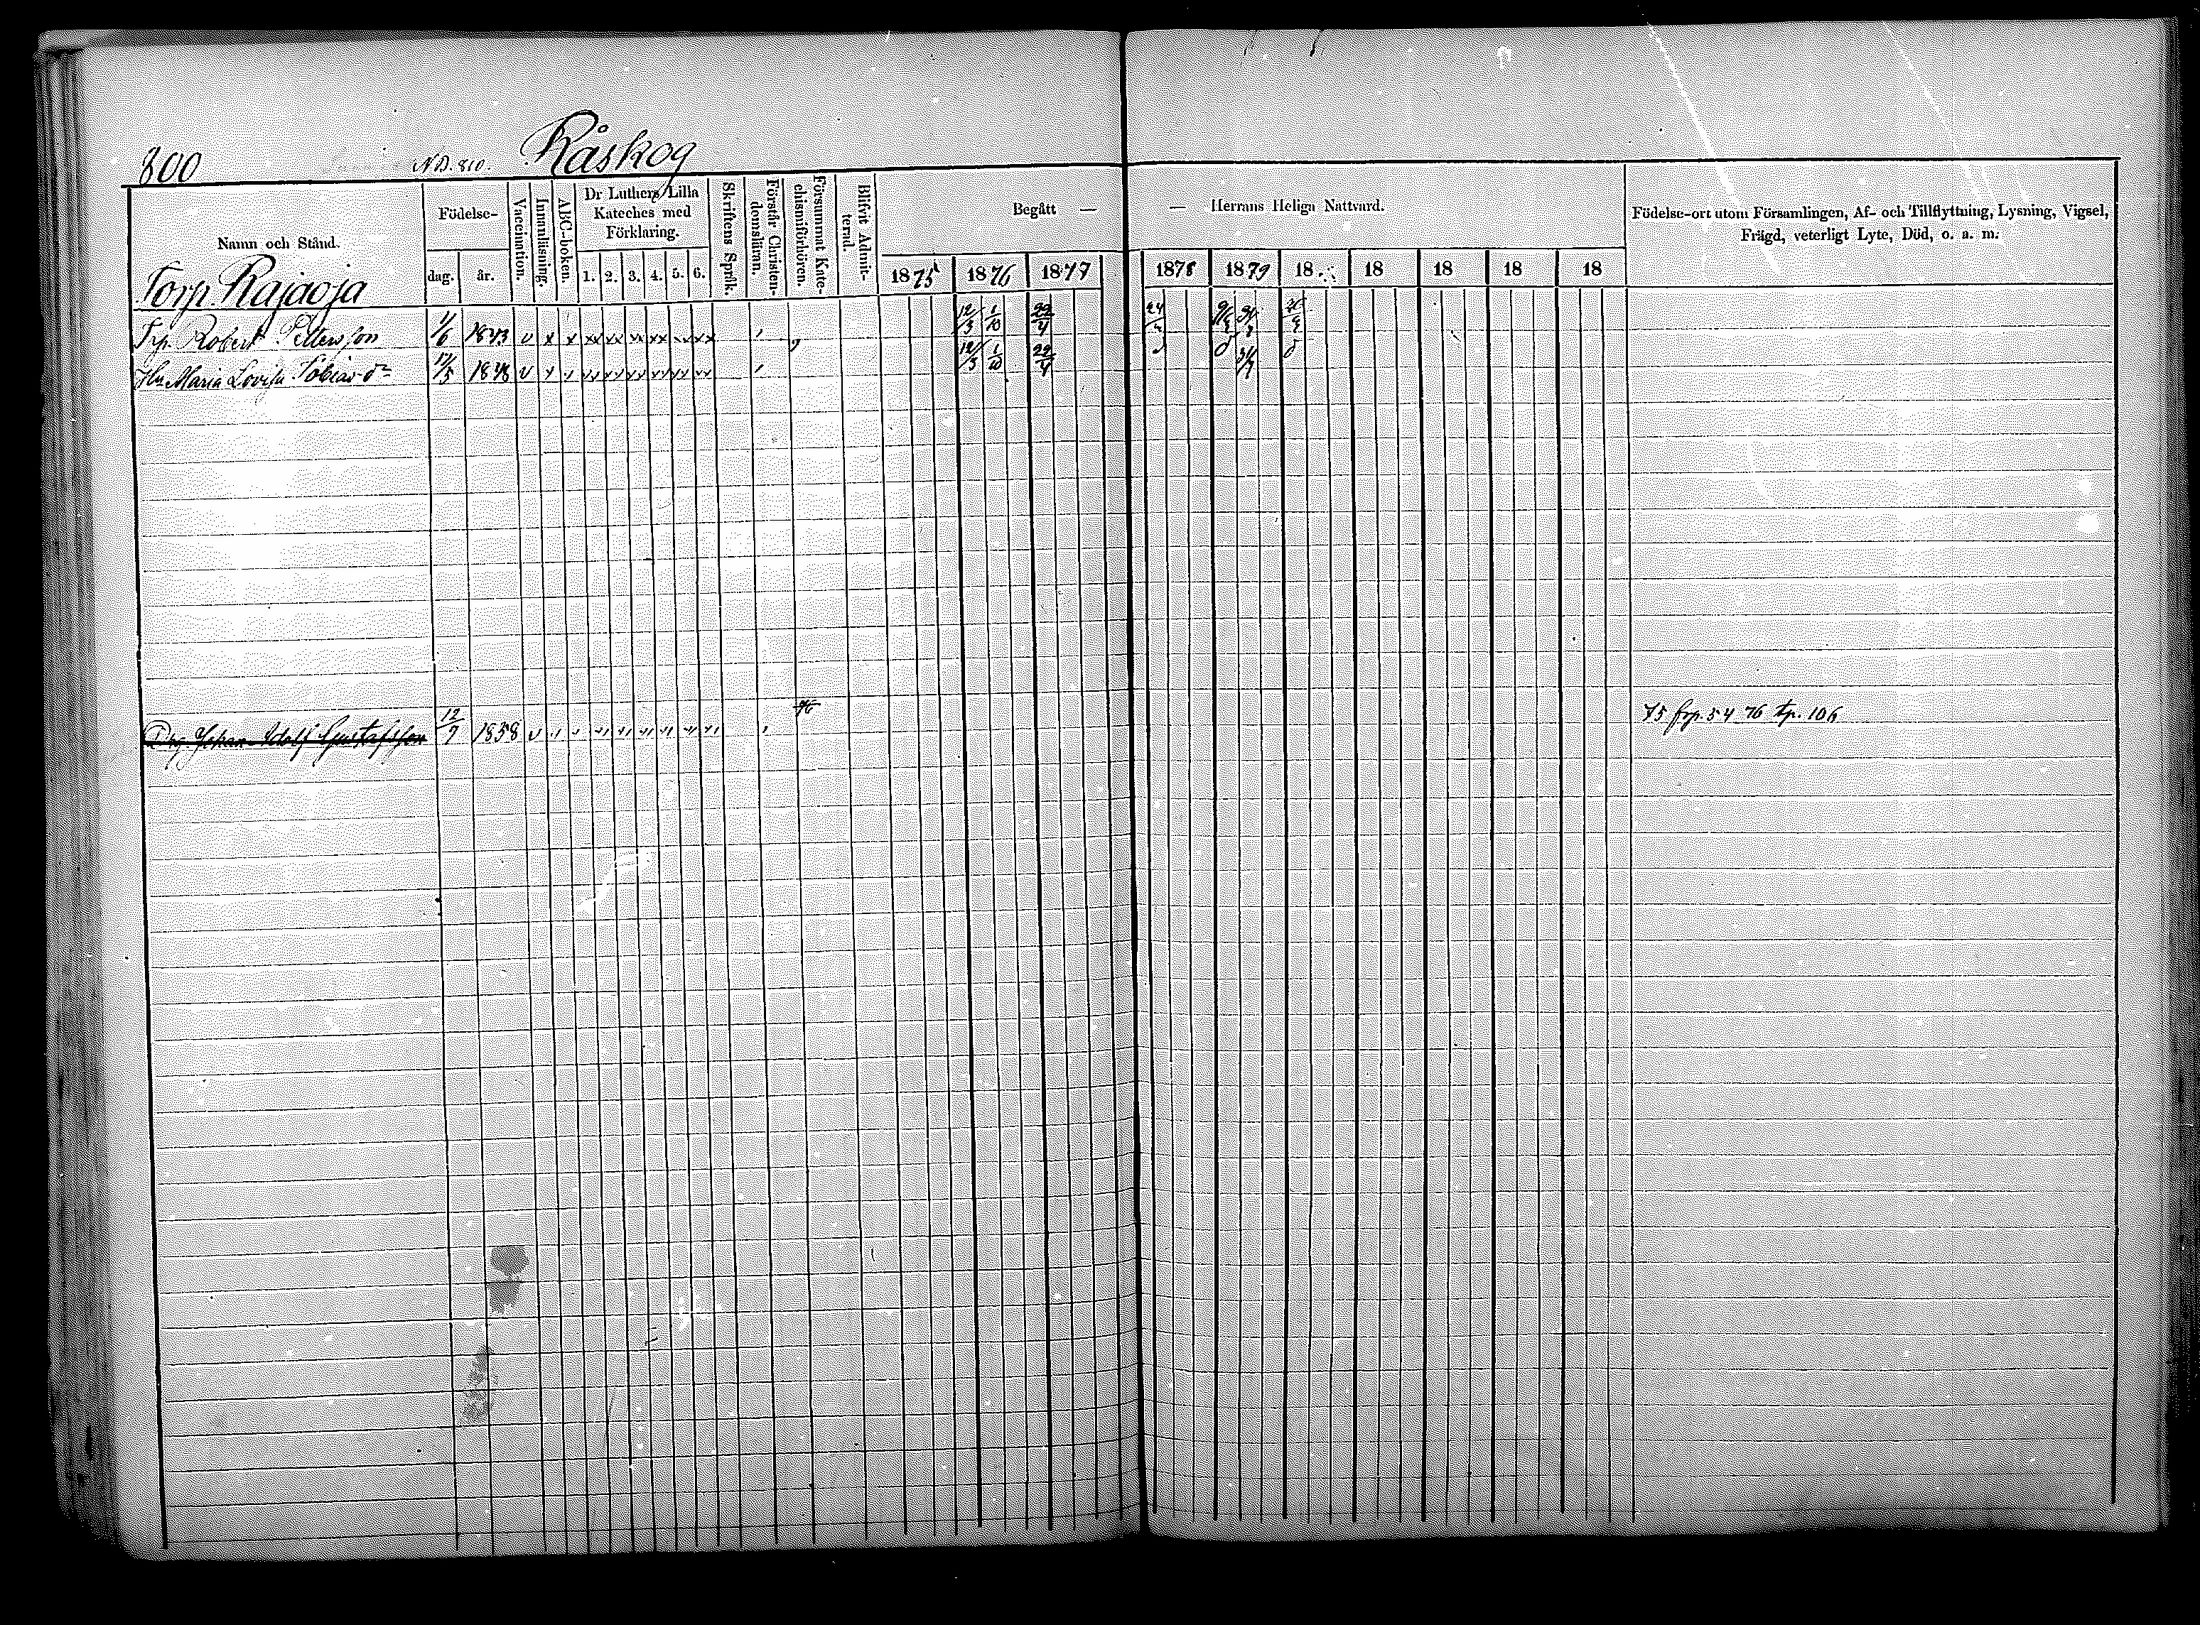 800 NB. 810. Råskog
Namn och Stånd.
Födelse-
dag. år.
Vaccination.
Innanläsning.
ABC-boken.
Dr Luthers Lilla
Kateches med
Förklaring.
1. 2. 3. 4. 5. 6.
Skriftens Språk.
Förstår Christen-
domsläran.
Försummat Kate-
chismiförhören.
Blifvit Admit-
terad.
Begått — — Herrans Heliga Nattvard.
1875 1876 1877 1878 1879 18 18 18 18 18
Födelse-ort utom Församlingen, Af- och Tillflyttning, Lysning, Vigsel,
Frägd, veterligt Lyte, Död, o. a. m.
Torp. Rajaoja
Trp. Robert Pettersson 1843 12/3 1/10 22/4
Hu Maria Lovisa Tobiasdr 17/5 1848 12/3 1/10 22/4
Drg. Johan Adolf Gustafsson 12/7 1858 75 frp. 54 76 tp. 106